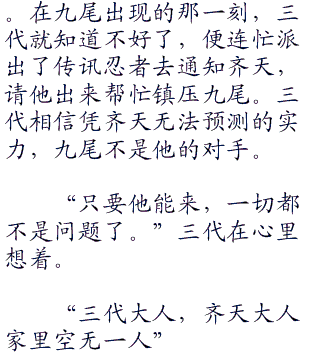 。在九尾出现的那一刻，三
代就知道不好了，便连忙派
出了传讯忍者去通知齐天，
请他出来帮忙镇压九尾。三
代相信凭齐天无法预测的实
力，九尾不是他的对手。
“只要他能来，一切都
不是问题了。”三代在心里
想着。
“三代大人，齐天大人
家里空无一人”